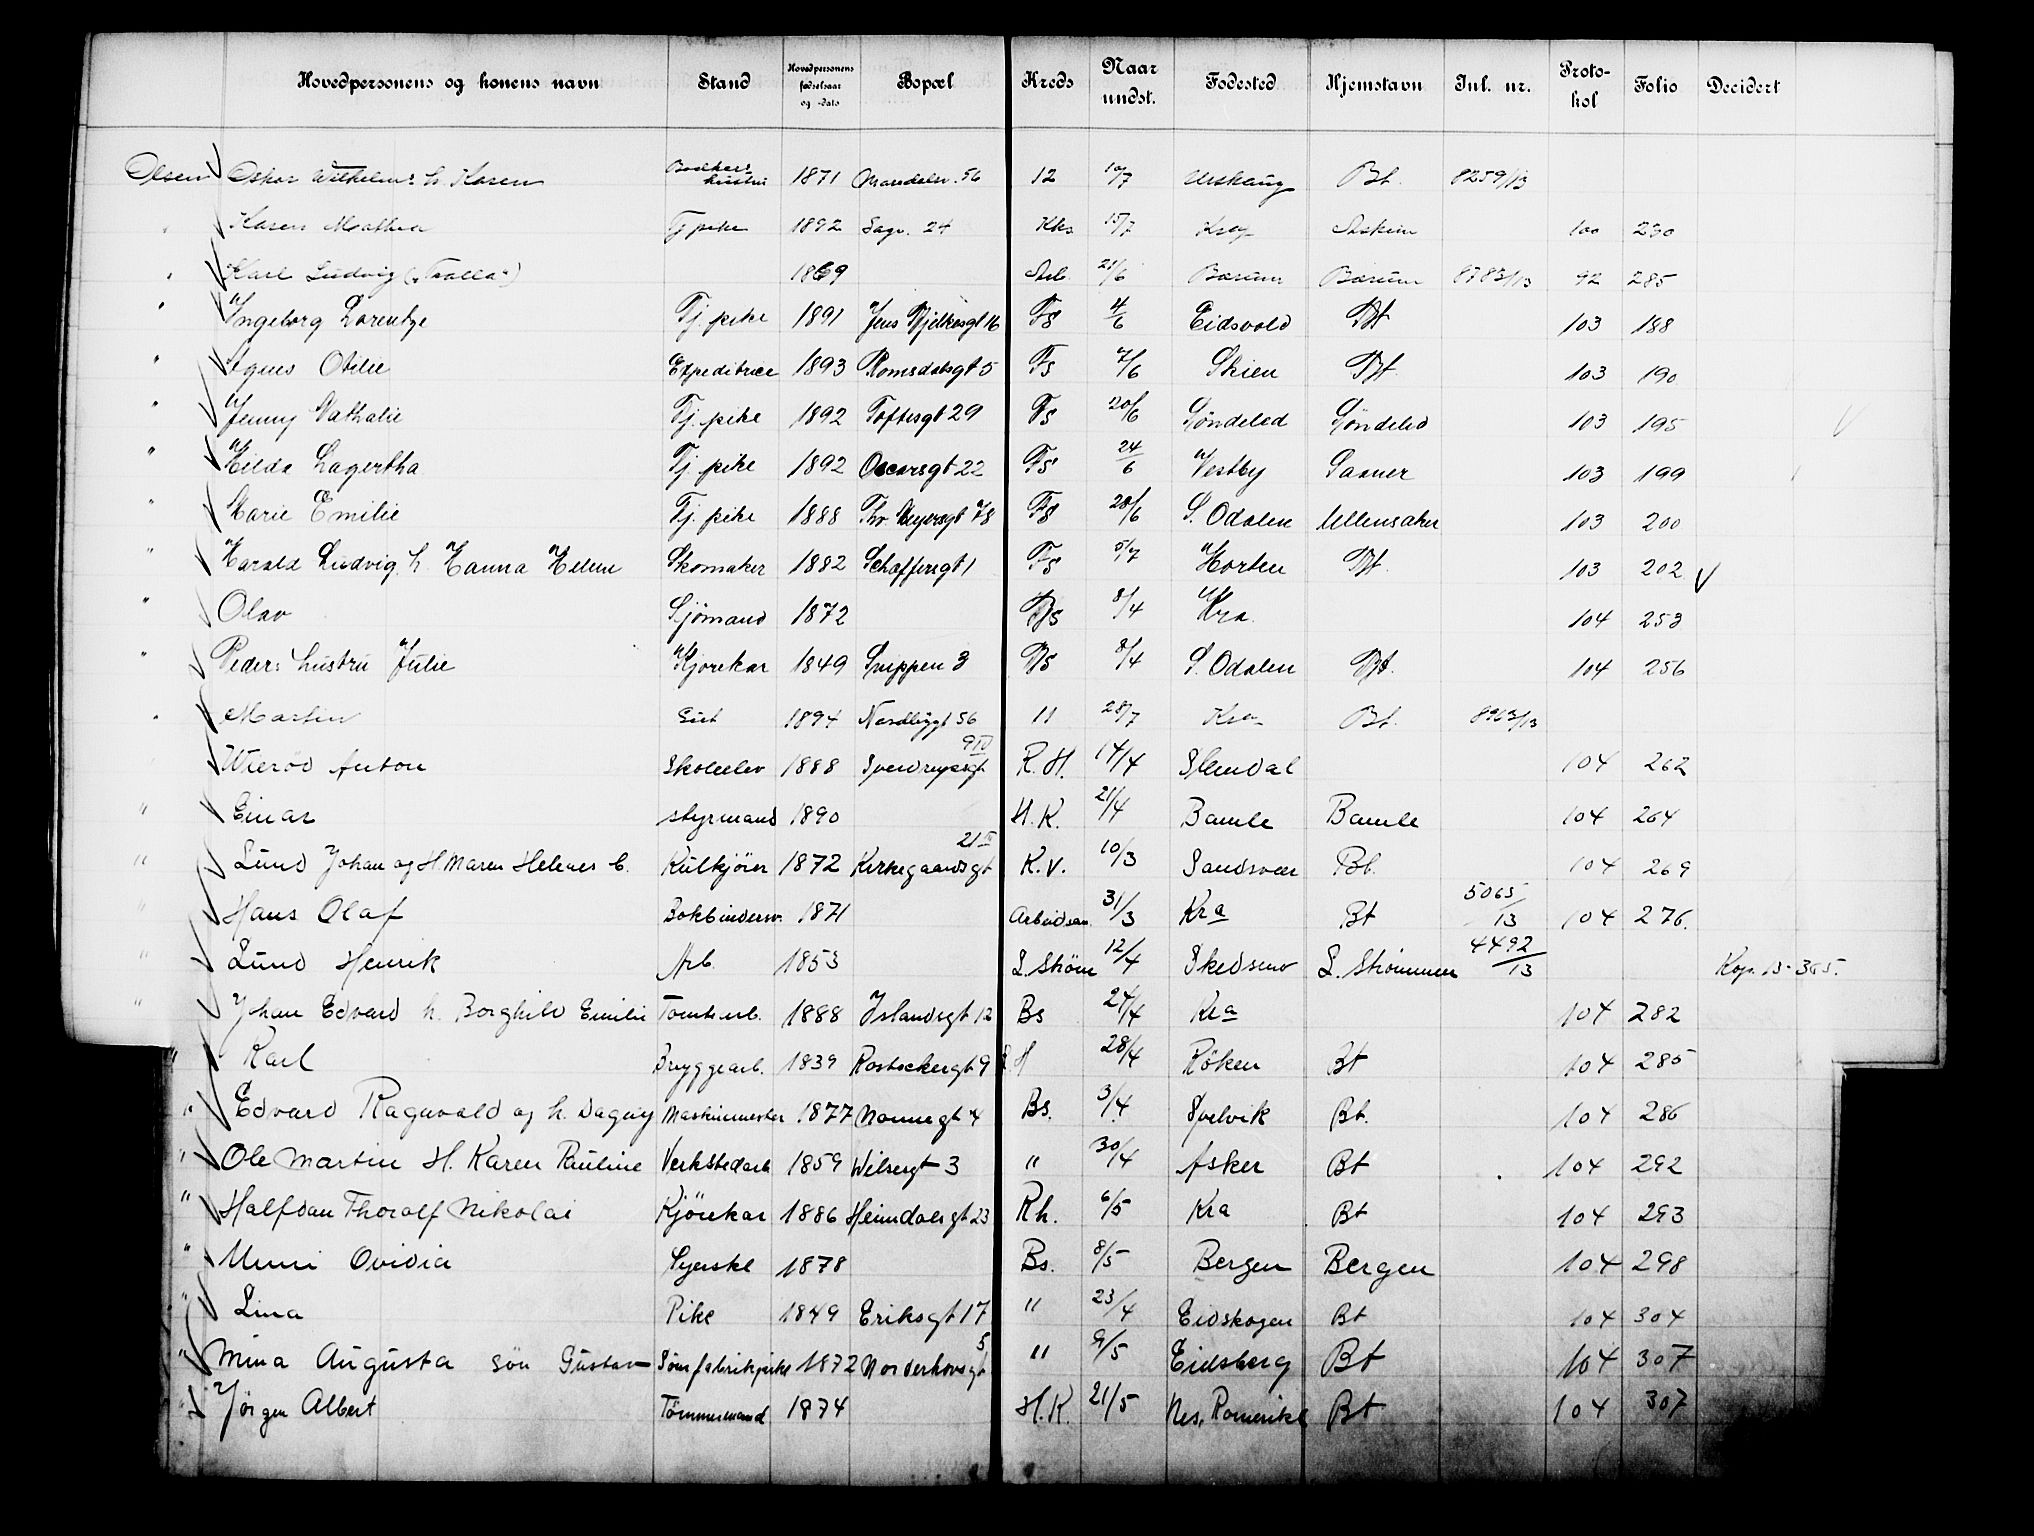 Hovedpersonens og konens navn Stand Hovedpersonens fødselsaar og -dato Bopæl Kreds Naar undst. Fødested Hjemstavn Inl. nr. Protokol Folio Decidert
Olsen Oskar Wilhelms h. Karen hustru 1871 Maridalsv. 56 12 10/7 Urskaug Bt. 8259/13
" Karen Mathea Tj pike 1892 Sagv. 24 Kks 15/7 Kra Askim 100 230
" Karl Ludvig ("Tralla") 1869 Arb. 21/6 Bærum Bærum 8783/13 92 285
" Ingeborg Lorentze Tj. pike 1891 Jens Bjelkesgt 16 Fs 4/6 Eidsvold Bt 103 188
" Agnes Otilie Expeditrice 1893 Romsdalsgt 5 Fs 7/6 Skien Bt. 103 190
" Jenny Nathalie Tj. pike 1892 Toftesgt 29 Fs 20/6 Søndeled Søndeled 103 195
" Hilda Lagertha Tj. pike 1892 Oscarsgt 22 Fs 24/6 Vestby Saaner 103 199
" Marie Emilie Tj. pike 1888 Thv. Meyersgt 78 Fs 28/6 S. Odalen Ullensaker 103 200
" Harald Ludvig h. Hanna Helene Skomaker 1882 Schæffersgt 1 Fs 5/7 Horten Bt. 103 202 V
" Olav Sjömand 1872 Bs 8/4 Kra. 104 253
" Peder: hustru Julie Kjørekar 1849 Snippen 3 Bs 8/4 S. Odalen Bt. 104 256
" Martin 1894 Nordbygt 56 11 28/7 Kra Bt. 8963/13
Wierød Anton Skoleelev 1888 Sverdrupsgt 9 IV R.H. 14/4 104 262
" Einar styrmand 1890 H.K. 21/4 Bamle Bamle 104 264
" Lund Johan og H. Maren Helenes b. Kulkjörer 1872 Kirkegaardsgt 21 K.V. 10/3 Sandsvær Bt. 104 269
" Hans Olaf Bokbindersv. 1871 Arbeidsan. 31/3 Kra Bt 5065/13 104 276.
" Lund Henrik Arb. 1853 L. Strøm 12/4 Skedsmo L. Strømmen 4492/13 Kop. 13-365.
" Johan Edvard h. Borghild Emilie Tomtearb. 1888 Islandsgt 12 Bs 24/4 Kra 104 282
" Karl Bryggearb. 1839 Rostockergt 9 R H 28/4 Röken Bt 104 285
" Edvard Ragnvald og h. Dagny Maskinmester 1877 Nonnegt 4 Bs. 3/4. Svelvik Bt. 104 286
" Ole Martin H. Karen Pauline Verkstedarb 1859 Wilsesgt 3 " 30/4 Asker Bt 104 292
" Halfdan Thoralf Nikolai Kjörekar 1886 Heimdalsgt 23 Rh. 6/5 Kra Bt 104 293
" Ovidia Syerske 1878 Bs. 8/5 Bergen Bergen 104 298
" Lina Pike 1849 Eriksgt 17 " 23/4 Eidskogen Bt 104 304
" Mina Augusta sön Gustav 1872 Norderhovsgt 5 " 9/5 Eidsberg Bt 104 307
" Jörgen Albert Tömmermand 1874 H.K. 21/5 Nes, Romerike Bt 104 307